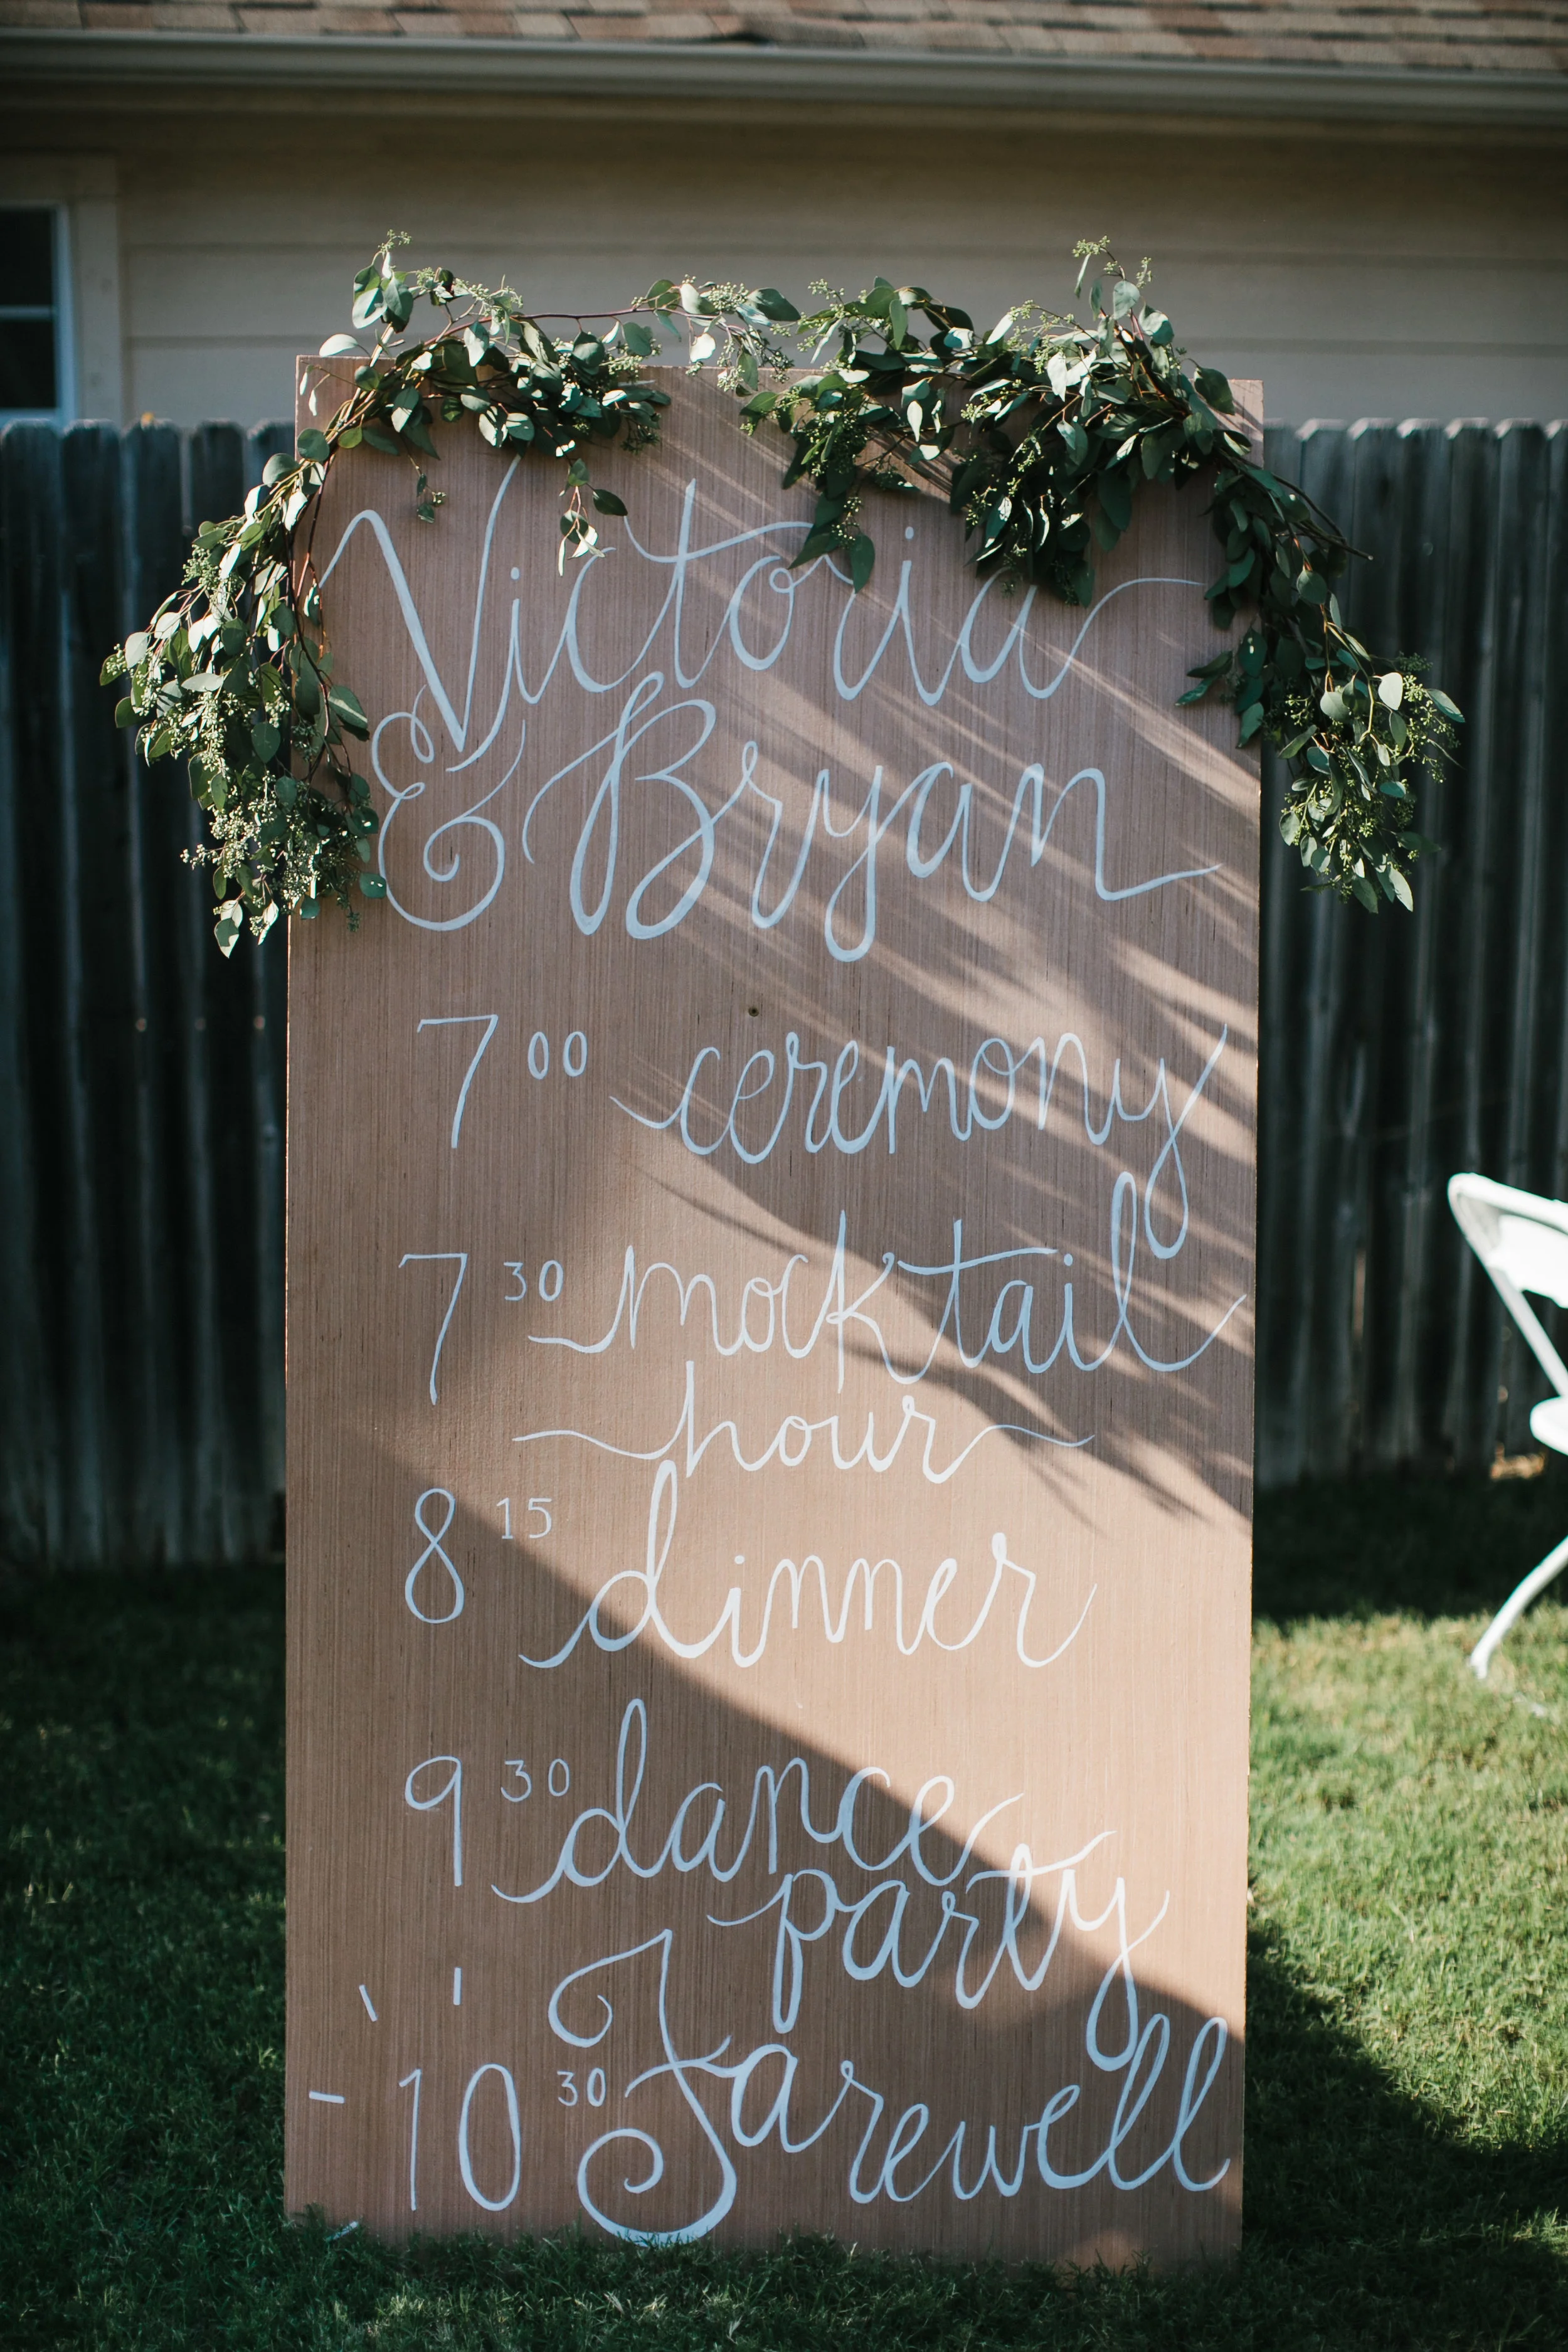 Victoria
& Bryan
7 00 ceremony
7 30 mocktail
hour
8 15 dinner
9 30 dance
party
10 30 Farewell